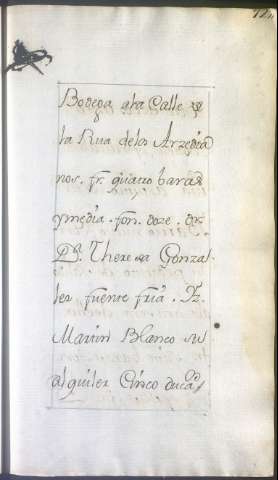 Bodega a la Calle de
la Rua delos Arzedia
nos. fr. quatro baras
y media. fon. doze. dᵉ
Dª. Theresa Gonzal-
lez fuente fria. Yz.
Martin Blanco su
alquiler Cinco ducaˢ